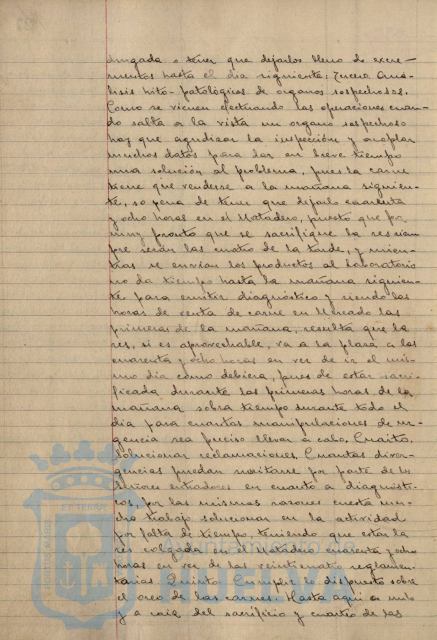 drugada o tener que dejarlos lleno de excre-
mentos hasta el dia siguiente; Tercero Aná-
lisis hito-patológicas de organos sospechosos.
Como se vienen efectuando las operaciones cuan-
do salta a la vista un organo sospechoso
hay que agudizar la inspección y acoplar
muchos datos para dar en breve tiempo
una solución al problema, pues la carne
tiene que venderse a la mañana siguien-
te, so pena de tener que dejarlo cuarenta
y ocho horas en el Matadero, puesto que por
muy pronto que se sacrifique la res siem
pre serán las cuatro de la tarde, y mien-
tras se envian los productos al Laboratorio
no da tiempo hasta la mañana siguien-
te para emitir diagnóstico y siendo las
horas de venta de carne en Mercado las
primeras de la mañana, resulta que la
res, si es aprovechable, va a la plaza a las
cuarenta y ocho horas en vez de ir el mis-
mo dia como debiera, pues de estar sacri-
ficada durante las primeras horas de la
mañana sobra tiempo durante todo el
dia para cuantas manipulaciones de ur-
gencia sea preciso llevar a cabo. Cuarto.
Solucionar reclamaciones. Cuantas diver-
gencias puedan suscitarse por parte de los
Señores entradores en cuanto a diagnósti-
cos, por las mismas razones cuesta mu-
cho trabajo solucionar en la actividad
por falta de tiempo, teniendo que estar la
res colgada en el Matadero cuarenta y ocho
horas en vez de las veinticuatro reglamen-
tarias. Quinto Cumplir lo dispuesto sobre
el oreo de las carnes. Hasta aqui es nulo
y a raiz del sacrificio y cuarteo de las